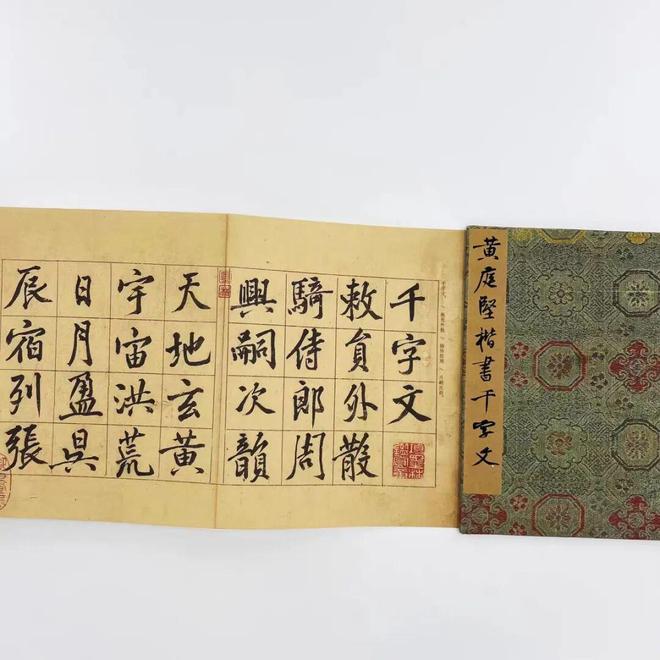 黄庭堅楷書千字文
千字文
敕員外散
騎侍郎周
興嗣次韻
天地玄黃
宇宙洪荒
日月盈昃
辰宿列張